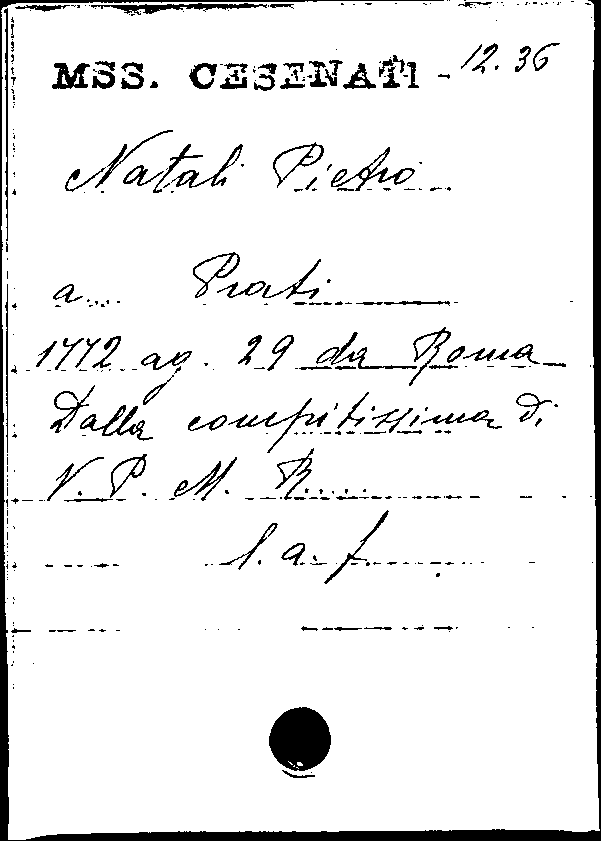 MSS. CESENATI - 12.36
Natali Pietro
a... Prati
1772 ag. 29 da Roma
Dalla compitissima di
V. P. M. R....
l. a. f.